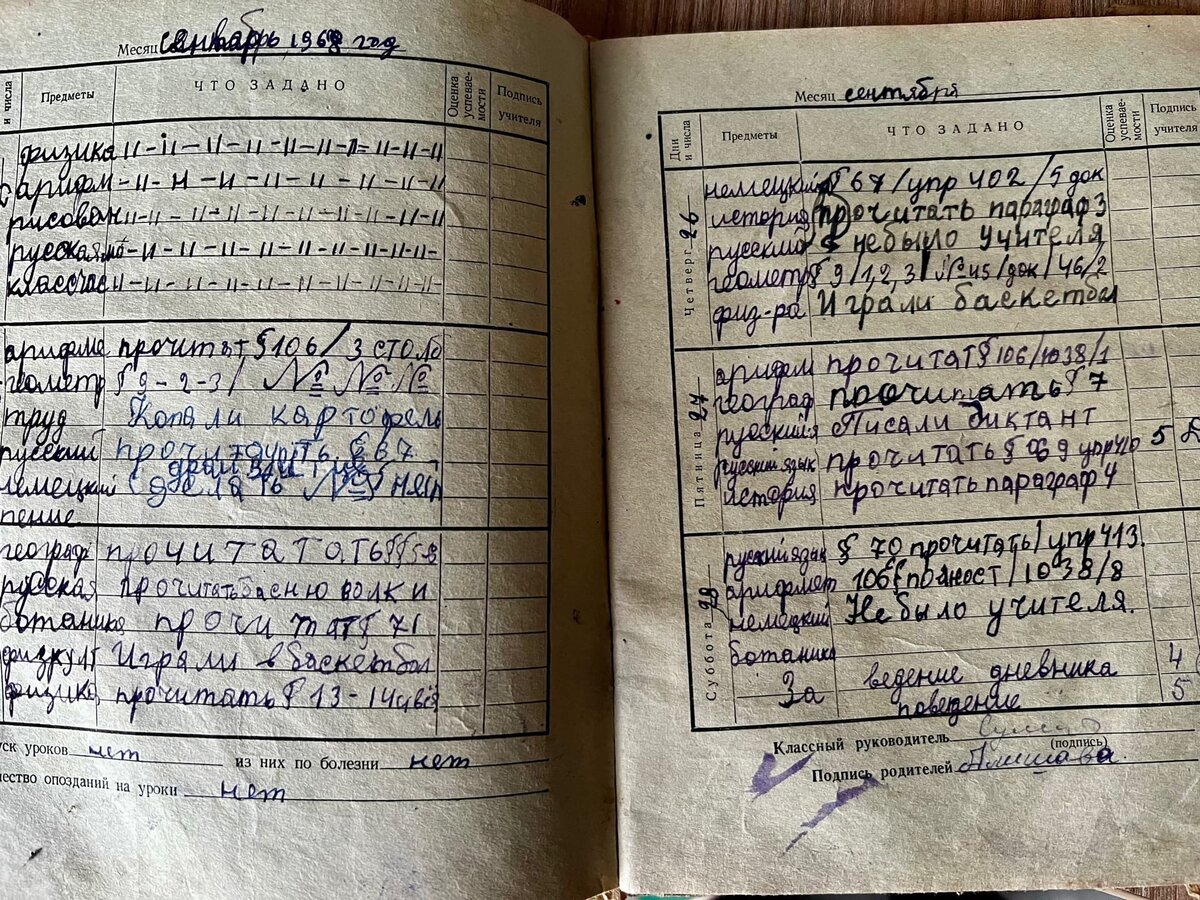 Месяц сентябрь, 1968 год
и числа Предметы ЧТО ЗАДАНО Оценка успеваемости Подпись учителя
физика -"-"-"-"-"-"-"-"-
арифм -"-"-"-"-"-"-"-"-
рисован -"-"-"-"-"-"-"-"-
русская -"-"-"-"-"-"-"-
классчас -"-"-"-"-"-"-"-"-
арифме прочитат § 106 / 3 столб
геометр § 9-2-3/ № № №
труд Копали картофель
русский прочитать § 67
немецкий делать №
пение
географ прочитатать §§ 5-8
русская прочитать басню волки
ботаника прочитат § 71
физкулт Играли в баскетбол
физика прочитать § 13-14
уск уроков нет из них по болезни нет
чество опозданий на уроки нет
Месяц сентября
Дни и числа Предметы ЧТО ЗАДАНО Оценка успеваемости Подпись учителя
Четверг 26
немецкий § 67/упр 402/5 док
история прочитать параграф 3
русский небыло учителя
геометр § 9/1,2,3/ №45/док/46/2
физ-ра Играли баскетбол
Пятница 27
арифм прочитат § 106/1038/1
географ прочитать § 7
русский я Писали диктант
русский язык прочитать § 69 упр 410 5
история прочитать параграф 4
Суббота 28
русский язык § 70 прочитать/ упр 413.
арифмет 106 § полност/1038/8
немецкий Небыло учителя.
ботаника
За ведение дневника 4
поведение 5
Классный руководитель
(подпись)
Подпись родителей